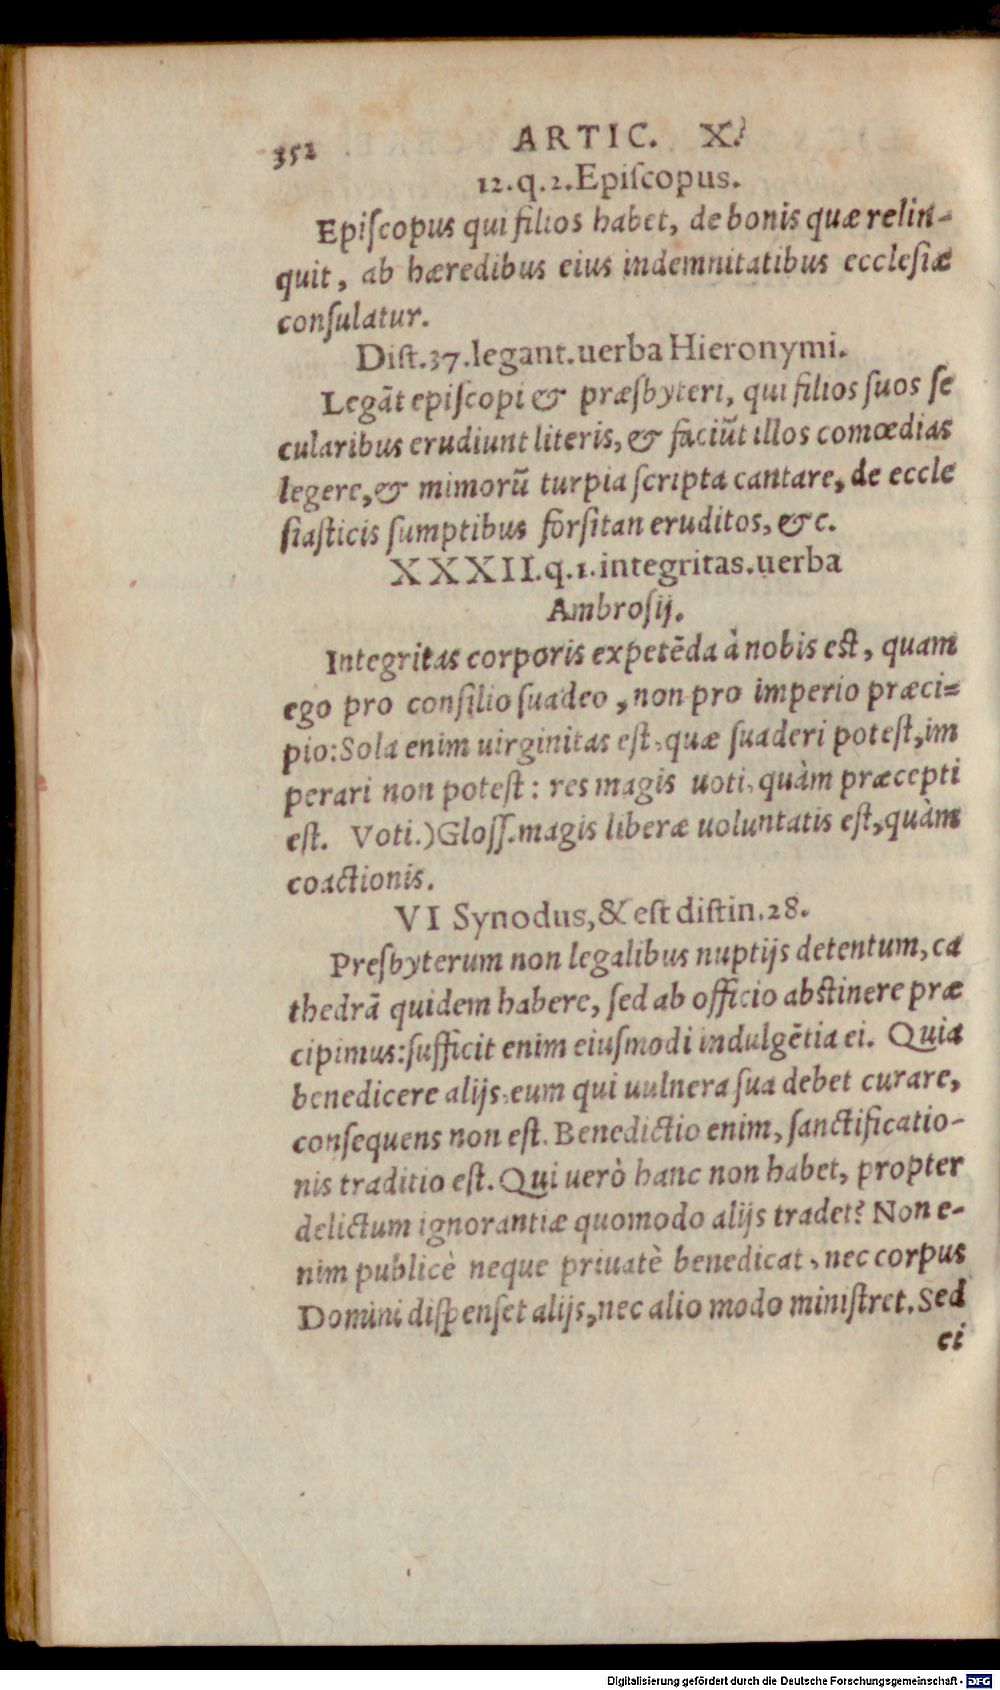 352 ARTIC. X.
12.q.2.Epiſcopus.
Epiſcopus qui filios habet, de bonis quæ relin-
quit, ab hæredibus eius indemnitatibus eccleſiæ
conſulatur.
Diſt.37.legant.uerba Hieronymi.
Legãt epiſcopi & præſbyteri, qui filios ſuos ſe
cularibus erudiunt literis, & faciũt illos comœdias
legere, & mimorũ turpia ſcripta cantare, de eccle
ſiaſticis ſumptibus forſitan eruditos, &c.
XXXII.q.1.integritas.uerba
Ambroſij.
Integritas corporis expetẽda à nobis eſt, quam
ego pro conſilio ſuadeo, non pro imperio præci=
pio: Sola enim uirginitas eſt, quæ ſuaderi poteſt, im
perari non poteſt: res magis uoti, quàm præcepti
eſt. Voti.) Gloſſ. magis liberæ uoluntatis eſt, quàm
coactionis.
VI Synodus, & eſt diſtin.28.
Preſbyterum non legalibus nuptijs detentum, ca
thedrã quidem habere, ſed ab officio abſtinere præ
cipimus: ſufficit enim eiuſmodi indulgẽtia ei. Quia
benedicere alijs, eum qui uulnera ſua debet curare,
conſequens non eſt. Benedictio enim, ſanctificatio-
nis traditio eſt. Qui uerò hanc non habet, propter
delictum ignorantiæ quomodo alijs tradet? Non e-
nim publicè neque priuatè benedicat, nec corpus
Domini diſpenſet alijs, nec alio modo miniſtret. Sed
ei
Digitalisierung gefördert durch die Deutsche Forschungsgemeinschaft - DFG